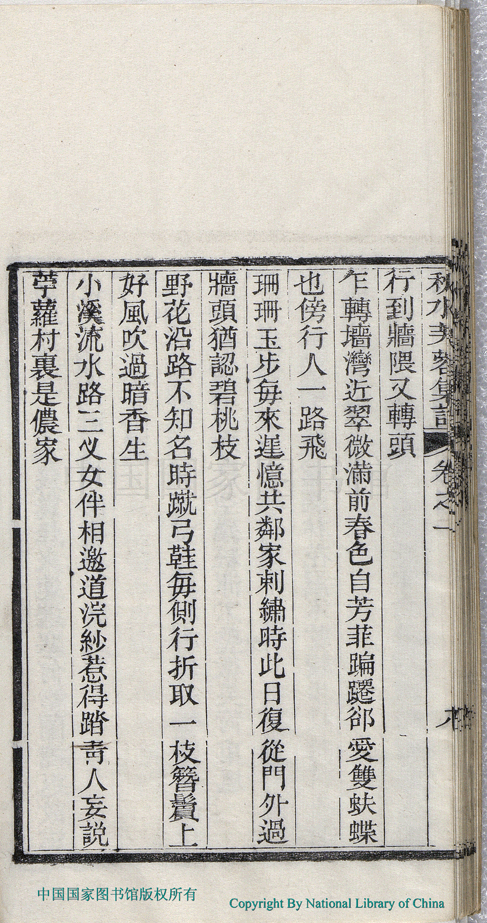 秋水芙蓉集詩 卷之一
行到牆隈又轉頭
乍轉墻灣近翠微滿前春色自芳菲蹁躚郤愛雙蚨蝶
也傍行人一路飛
珊珊玉步每來遲憶共鄰家刺繡時此日復從門外過
牆頭猶認碧桃枝
野花沿路不知名時蹴弓鞋每側行折取一枝簪鬢上
好風吹過暗香生
小溪流水路三义女伴相邀道浣紗惹得踏靑人妄説
苧蘿村裏是儂家
中国国家图书馆
中国国家图书馆版权所有
Copyright By National Library of China